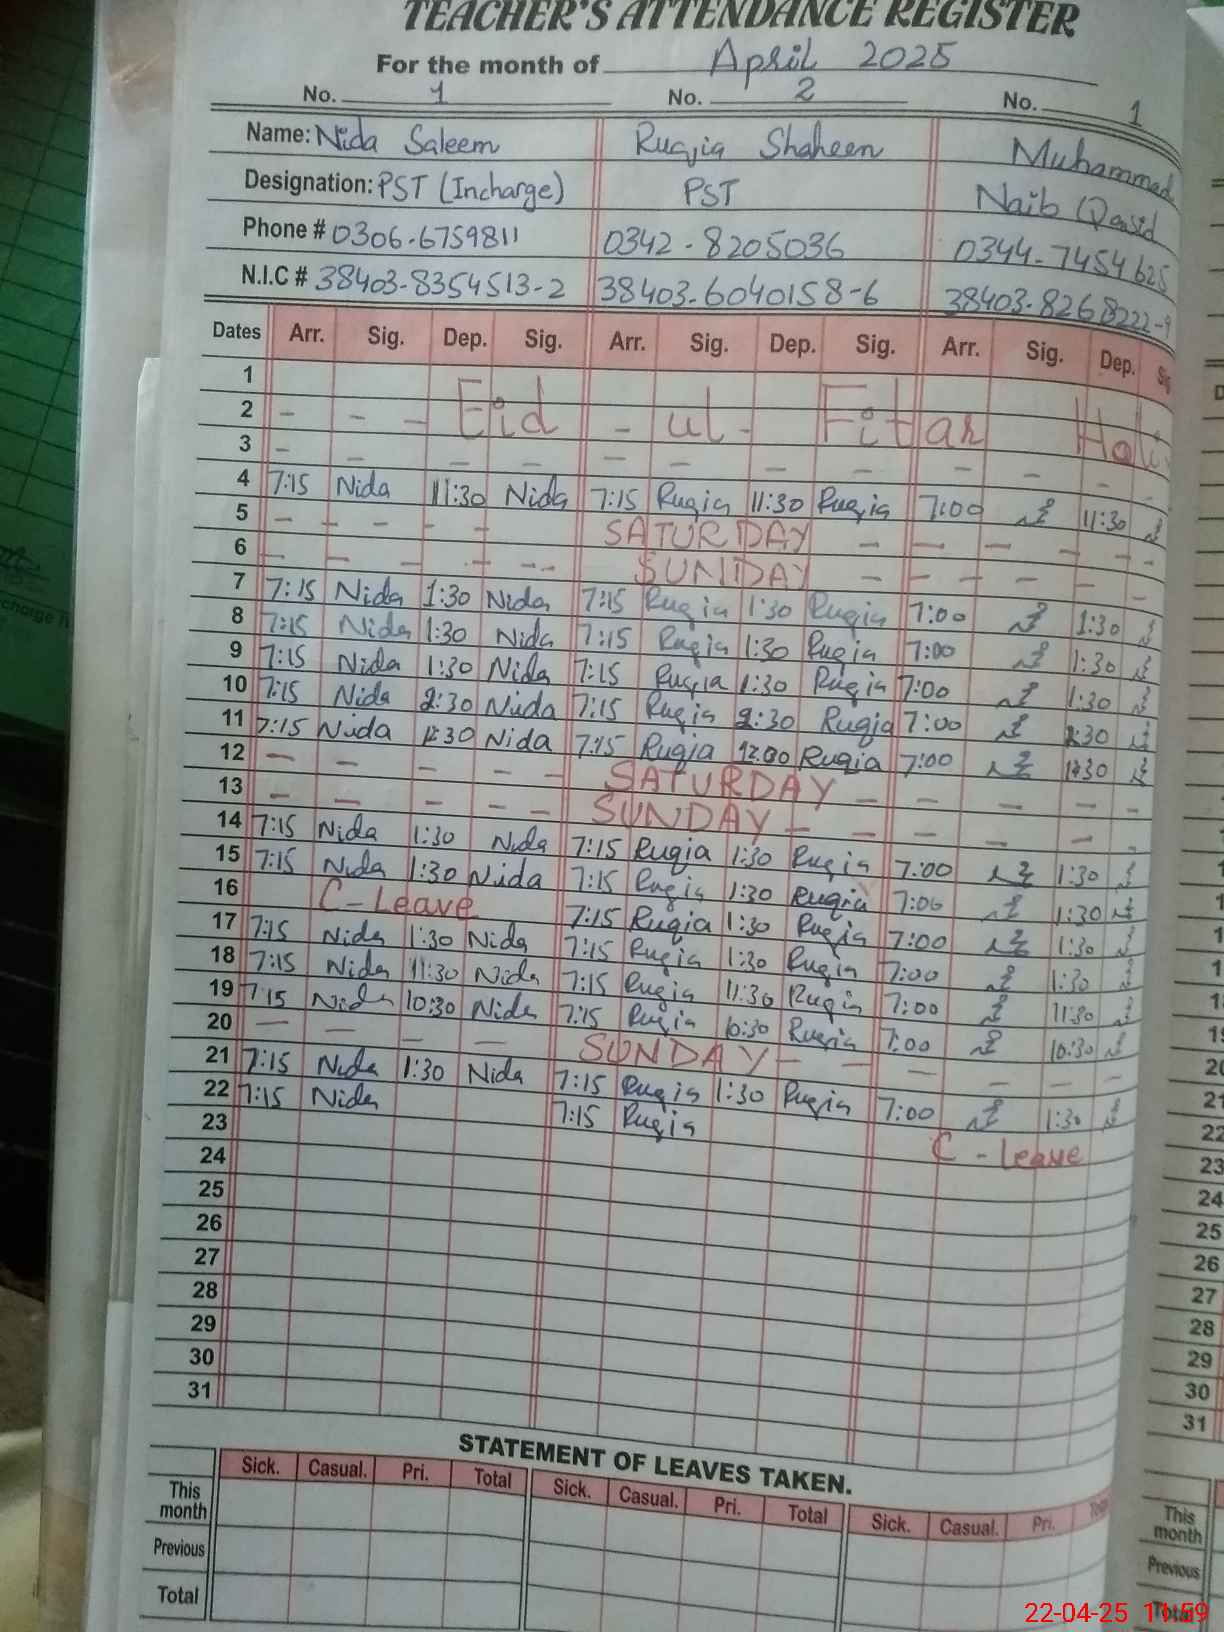 TEACHER'S ATTENDANCE REGISTER
For the month of April 2025
No. 1 No. 2 No. 1
Name: Nida Saleem Ruqia Shaheen Muhammad
Designation: PST (Incharge) PST Naib Qasid
Phone # 0306-6759811 0342-8205036 0344-7454625
N.I.C # 38403-8354513-2 38403-6040158-6 38403-8268222-9
Dates Arr. Sig. Dep. Sig. Arr. Sig. Dep. Sig. Arr. Sig. Dep.
1
2 - - - Eid - ul - Fitar Holi
3 - - - - - - - - - - -
4 7:15 Nida 11:30 Nida 7:15 Ruqia 11:30 Ruqia 7:00 11:30
5 - - - - SATURDAY - - - - -
6 - - - - SUNDAY - - - - -
7 7:15 Nida 1:30 Nida 7:15 Ruqia 1:30 Ruqia 7:00 1:30
8 7:15 Nida 1:30 Nida 7:15 Ruqia 1:30 Ruqia 7:00 1:30
9 7:15 Nida 1:30 Nida 7:15 Ruqia 1:30 Ruqia 7:00 1:30
10 7:15 Nida 2:30 Nida 7:15 Ruqia 2:30 Ruqia 7:00
11 7:15 Nida Nida 7:15 Ruqia Ruqia 7:00
12 - - - - - SATURDAY - - - - -
13 - - - - - SUNDAY - - - - -
14 7:15 Nida 1:30 Nida 7:15 Ruqia 1:30 Ruqia 7:00 1:30
15 7:15 Nida 1:30 Nida 7:15 Ruqia 1:30 Ruqia 7:00 1:30
16 C-Leave 7:15 Ruqia 1:30 Ruqia 7:00 1:30
17 7:15 Nida 1:30 Nida 7:15 Ruqia 1:30 Ruqia 7:00 1:30
18 7:15 Nida 11:30 Nida 7:15 Ruqia 11:30 Ruqia 7:00 11:30
19 7:15 Nida 10:30 Nida 7:15 Ruqia 10:30 Ruqia 7:00 10:30
20 - - - - SUNDAY - - - - - -
21 7:15 Nida 1:30 Nida 7:15 Ruqia 1:30 Ruqia 7:00 1:30
22 7:15 Nida 7:15 Ruqia C-leave
23
24
25
26
27
28
29
30
31
STATEMENT OF LEAVES TAKEN.
Sick. Casual. Pri. Total Sick. Casual. Pri. Total Sick. Casual. Pri.
This month
Previous
Total
22
23
24
25
26
27
28
29
30
31
This month
Previous
Total
22-04-25 11:59